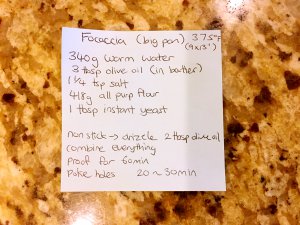 Focaccia (big pan) 375°F
(9x13")
340g warm water
3 tbsp olive oil (in batter)
1 1/4 tsp salt
418g all purp flour
1 tbsp instant yeast
nonstick → drizzle 2 tbsp olive oil
combine everything
Proof for 60min
Poke holes 20~30min